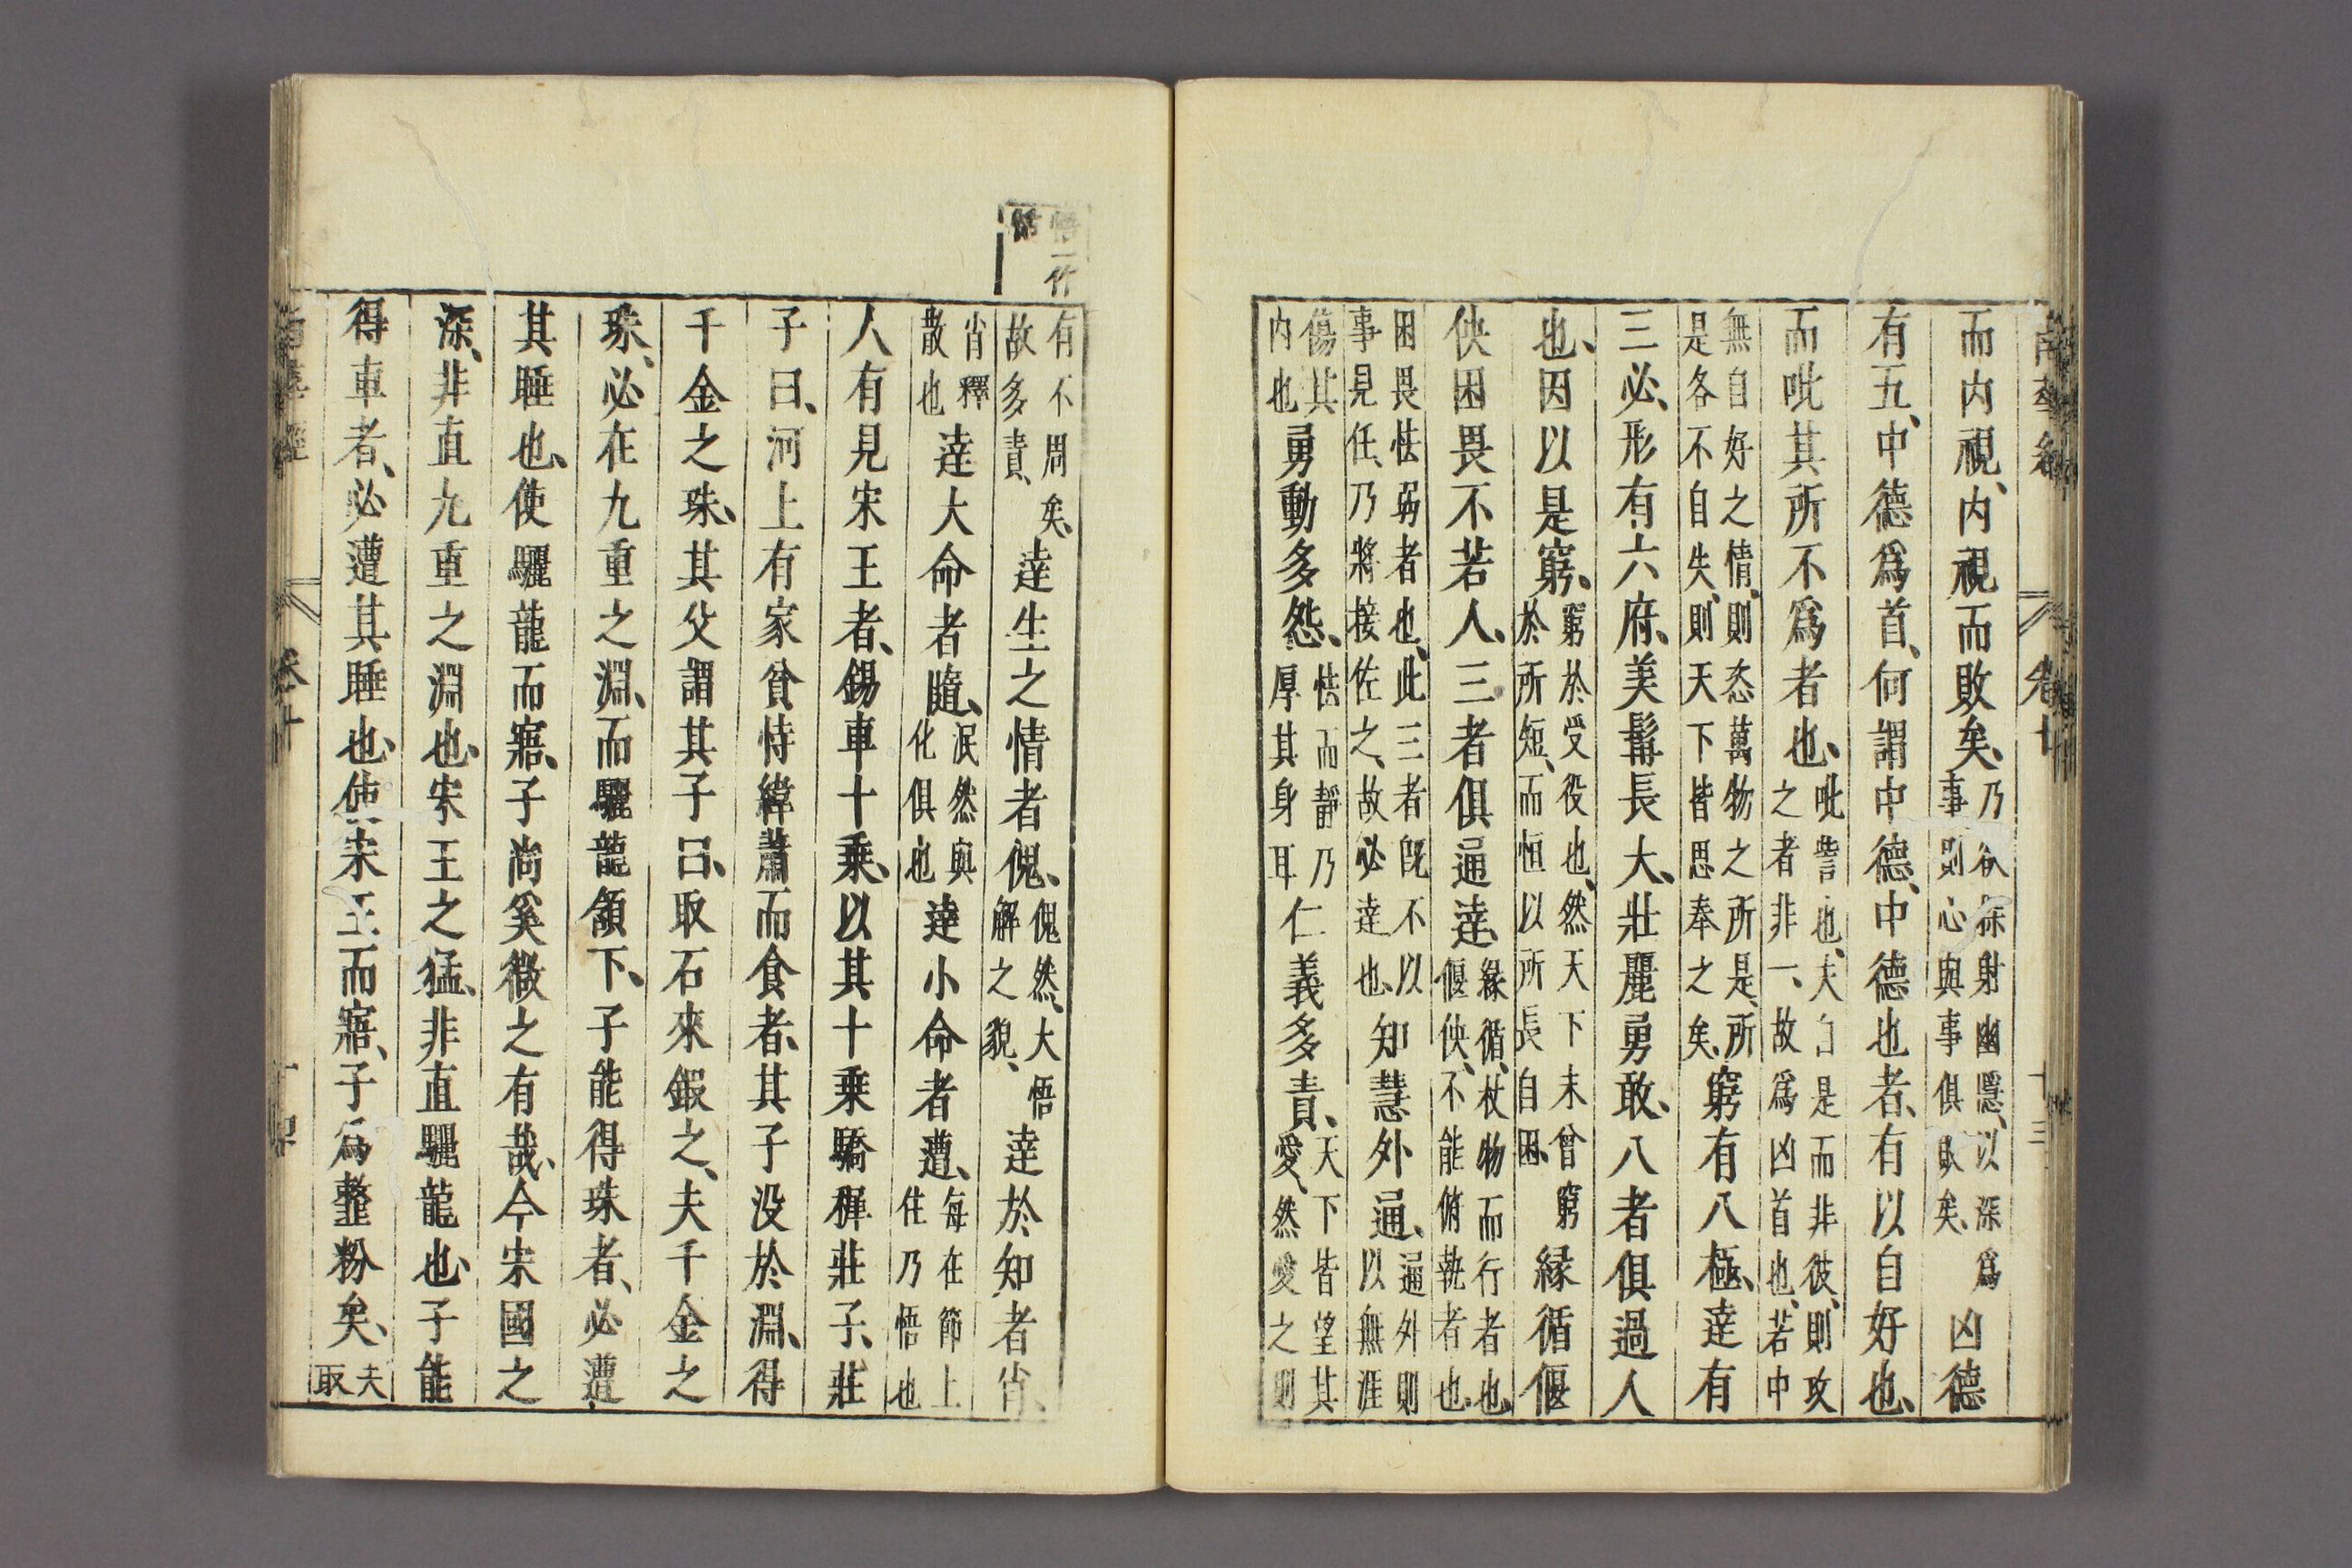 南華經 卷十 十三
而内視、内視而敗矣、乃欲探射幽隱、以深爲事則心與事俱敗矣、凶德
有五、中德爲首、何謂中德、中德也者、有以自好也、
而吡其所不爲者也、吡訾也、夫自是而非彼、則攻之者非一、故爲凶首也、若中
無自好之情、則恣萬物之所是、所是各不自失、則天下皆思奉之矣、窮有八極、達有
三必、形有六府、美髯長大、壯麗勇敢、八者俱過人
也、因以是窮、窮於受役也、然天下未曾窮於所短、而恒以所長自困、緣循偃
佒困畏不若人、三者俱通達、緣循、杖物而行者也、偃佒、不能俯執者也、
困畏怯弱者也、此三者既不以事見任、乃將接佐之、故必達也、知慧外通、通外則以無涯
傷其内也勇動多怨、怯而靜乃厚其身耳仁義多責、天下皆望其愛、然愛之則
悟一作
有不周矣、故多責、達生之情者傀、傀然、大悟解之貌、達於知者肖、
肖釋散也達大命者隨、泯然與化俱也達小命者遭、每在節上住乃悟也
人有見宋王者、錫車十乘、以其十乘驕穉莊子、莊
子曰、河上有家貧恃緯蕭而食者、其子没於淵、得
千金之珠、其父謂其子曰、取石來鍜之、夫千金之
珠、必在九重之淵、而驪龍頷下、子能得珠者、必遭
其睡也、使驪龍而寤、子尚奚微之有哉、今宋國之
深、非直九重之淵也、宋王之猛、非直驪龍也、子能
得車者、必遭其睡也、使宋王而寤、子爲韲粉矣、夫取
卷十